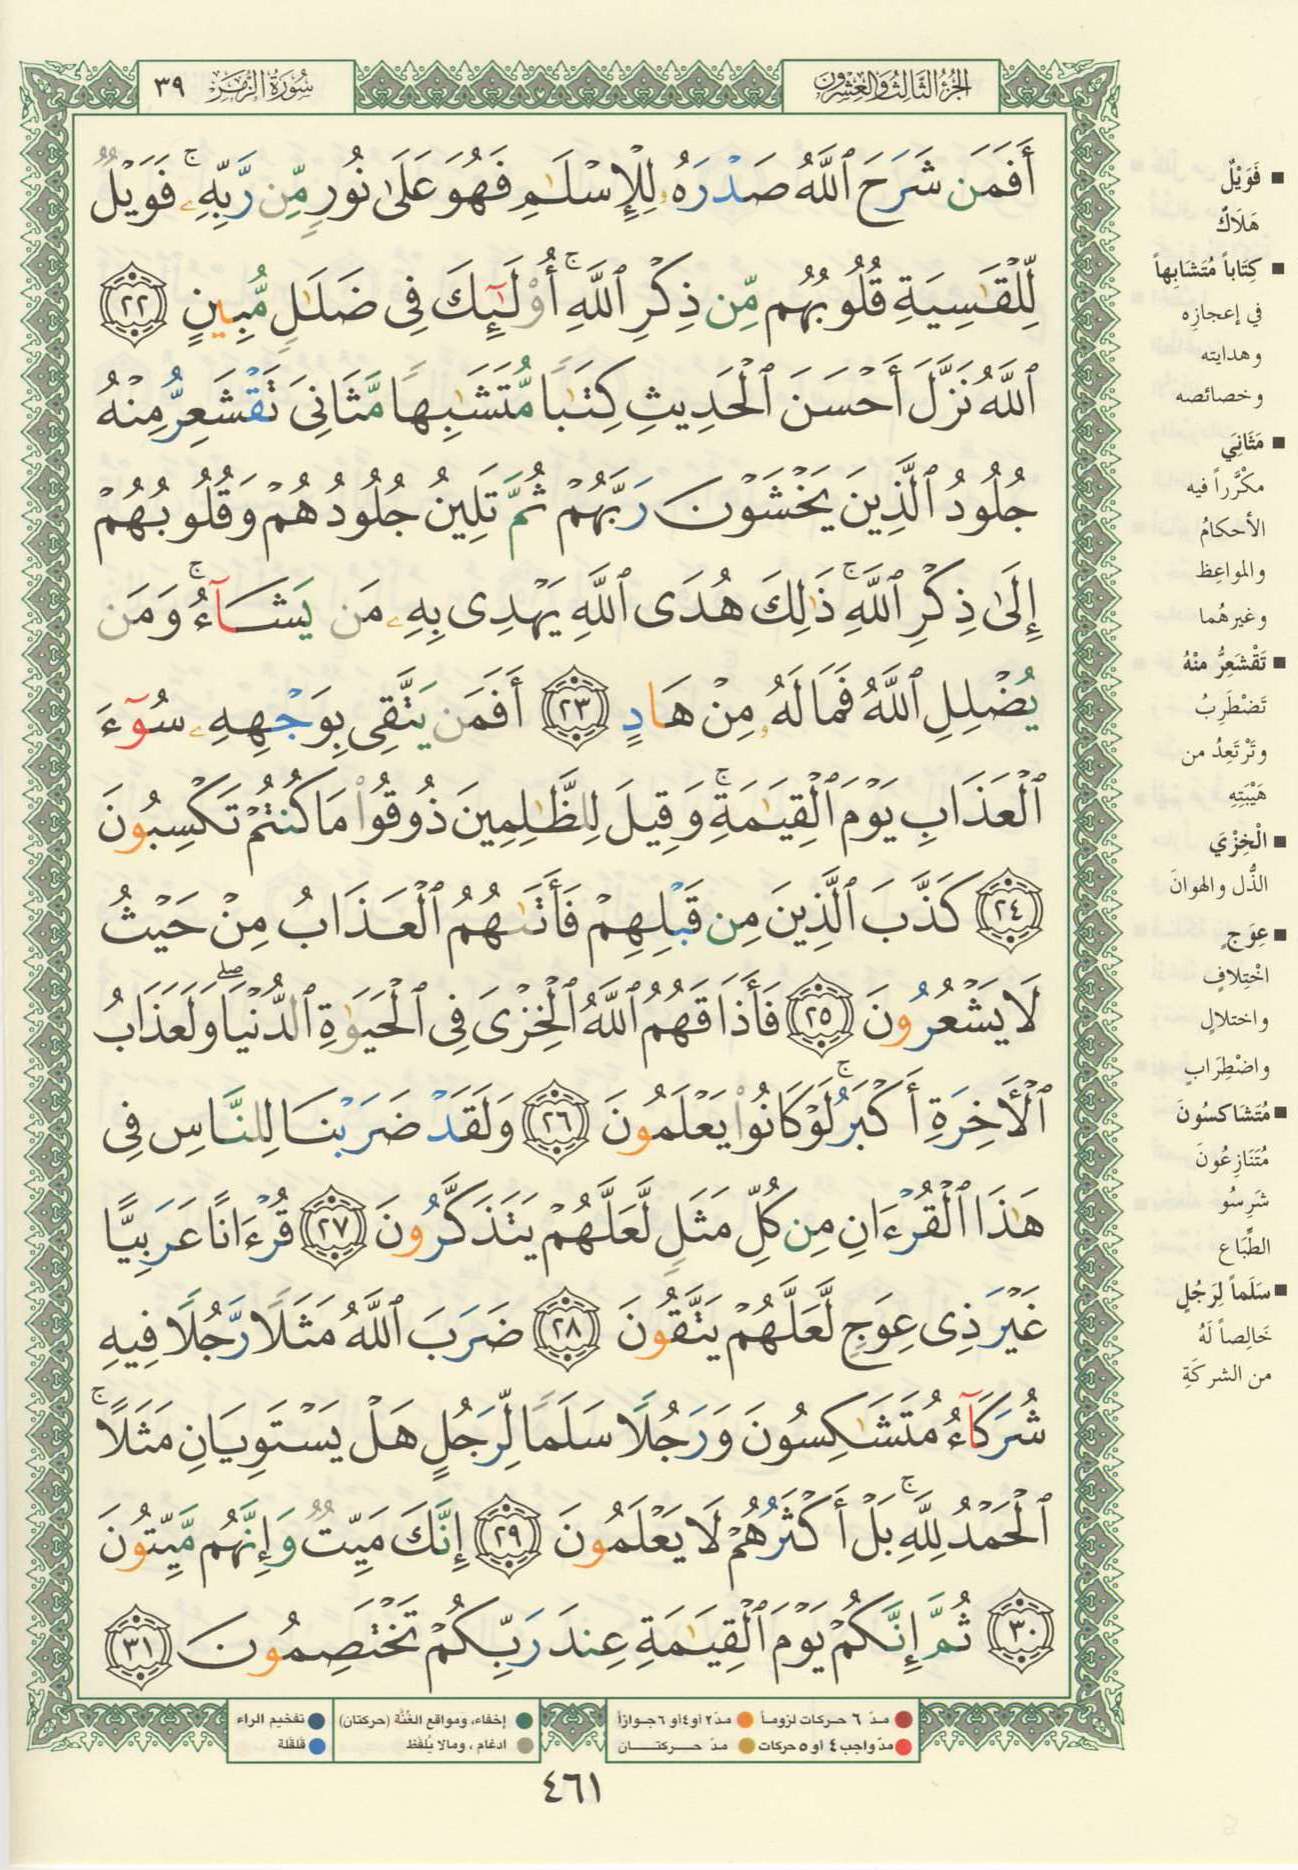 الجزء الثالث والعشرون
سورة الزمر ٣٩
أَفَمَن شَرَحَ ٱللَّهُ صَدْرَهُۥ لِلْإِسْلَٰمِ فَهُوَ عَلَىٰ نُورٍ مِّن رَّبِّهِۦ ۚ فَوَيْلٌ
لِّلْقَٰسِيَةِ قُلُوبُهُم مِّن ذِكْرِ ٱللَّهِ ۚ أُو۟لَٰٓئِكَ فِى ضَلَٰلٍ مُّبِينٍ ٢٢
ٱللَّهُ نَزَّلَ أَحْسَنَ ٱلْحَدِيثِ كِتَٰبًا مُّتَشَٰبِهًا مَّثَانِىَ تَقْشَعِرُّ مِنْهُ
جُلُودُ ٱلَّذِينَ يَخْشَوْنَ رَبَّهُمْ ثُمَّ تَلِينُ جُلُودُهُمْ وَقُلُوبُهُمْ
إِلَىٰ ذِكْرِ ٱللَّهِ ۚ ذَٰلِكَ هُدَى ٱللَّهِ يَهْدِى بِهِۦ مَن يَشَآءُ ۚ وَمَن
يُضْلِلِ ٱللَّهُ فَمَا لَهُۥ مِنْ هَادٍ ٢٣ أَفَمَن يَتَّقِى بِوَجْهِهِۦ سُوٓءَ
ٱلْعَذَابِ يَوْمَ ٱلْقِيَٰمَةِ ۚ وَقِيلَ لِلظَّٰلِمِينَ ذُوقُوا۟ مَا كُنتُمْ تَكْسِبُونَ
٢٤ كَذَّبَ ٱلَّذِينَ مِن قَبْلِهِمْ فَأَتَىٰهُمُ ٱلْعَذَابُ مِنْ حَيْثُ
لَا يَشْعُرُونَ ٢٥ فَأَذَاقَهُمُ ٱللَّهُ ٱلْخِزْىَ فِى ٱلْحَيَوٰةِ ٱلدُّنْيَا ۖ وَلَعَذَابُ
ٱلْـَٔاخِرَةِ أَكْبَرُ ۚ لَوْ كَانُوا۟ يَعْلَمُونَ ٢٦ وَلَقَدْ ضَرَبْنَا لِلنَّاسِ فِى
هَٰذَا ٱلْقُرْءَانِ مِن كُلِّ مَثَلٍ لَّعَلَّهُمْ يَتَذَكَّرُونَ ٢٧ قُرْءَانًا عَرَبِيًّا
غَيْرَ ذِى عِوَجٍ لَّعَلَّهُمْ يَتَّقُونَ ٢٨ ضَرَبَ ٱللَّهُ مَثَلًا رَّجُلًا فِيهِ
شُرَكَآءُ مُتَشَٰكِسُونَ وَرَجُلًا سَلَمًا لِّرَجُلٍ هَلْ يَسْتَوِيَانِ مَثَلًا ۚ
ٱلْحَمْدُ لِلَّهِ ۚ بَلْ أَكْثَرُهُمْ لَا يَعْلَمُونَ ٢٩ إِنَّكَ مَيِّتٌ وَإِنَّهُم مَّيِّتُونَ
٣٠ ثُمَّ إِنَّكُمْ يَوْمَ ٱلْقِيَٰمَةِ عِندَ رَبِّكُمْ تَخْتَصِمُونَ ٣١
■ فَوَيْلٌ
هَلَاكٌ
■ كِتَاباً مُتَشَابِهاً
في إعجازِه
وهدايته
وخصائصه
■ مَثَانِيَ
مكرَّراً فيه
الأحكامُ
والمواعِظ
وغيرهُما
■ تَقْشَعِرُّ مِنْهُ
تَضْطَرِبُ
وتَرْتَعِدُ من
هَيْبَتِهِ
■ الْخِزْيَ
الذُّل والهوانَ
■ عِوَجٍ
اخْتِلافٍ
واختلالٍ
واضْطِرَابٍ
■ مُتَشَاكسُونَ
مُتَنَازِعُونَ
شَرِسُو
الطِّبَاع
■ سَلَماً لِرَجُلٍ
خَالِصاً لَهُ
من الشركَةِ
مدّ ٦ حركات لزوماً مدّ ٢ او ٤ او ٦ جوازاً إخفاء، ومواقع الغُنَّة (حركتان) تفخيم الراء
مدّ واجب ٤ او ٥ حركات مدّ حركتان ادغام ، ومالا يُلفَظ قلقلة
٤٦١